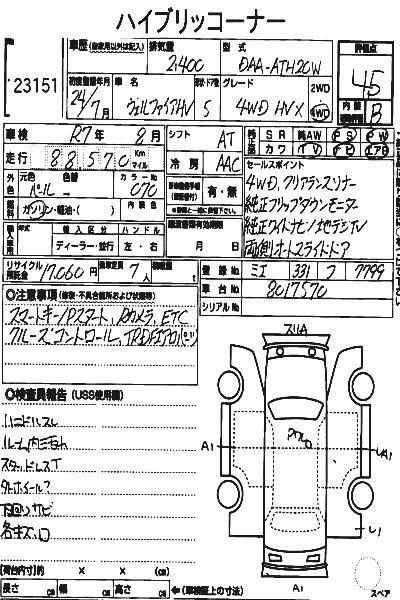 ハイブリッコーナー
No. 23151
車歴 (自家用以外は記入) 排気量 2,400 型式 DAA-ATH20W 評価点 4.5
初度登録年月 24/7月 車名 ヴェルファイアHV ドア 5 グレード 4WD HV X 2WD 4WD 内装 B
車検 R7年 8月 シフト AT 純正 SR 純AW PS PW
走行 88570 Km マイル 冷房 AAC カワ TV エアB
外色 元色 パール 色替 カラーNo. 070 有・無 セールスポイント
燃料 ガソリン・軽油・( ) 内装色 4WD、クリアランスソナー
輸入区分 ハンドル 純正フリップダウンモニター
輸入車 年 ディーラー・並行 左・右 月 日 純正ワイドナビ/地デジTV
両側オートスライドドア
リサイクル預託金 17060円 乗車定員 7人 登録No. ミエ 331 フ 7799
車台No. 8017570
シリアルNo.
○注意事項
スマートキー/Pスタート、Rカメラ、ETC
クルーズコントロール、TRDエアロ(パーツ)
○検査員報告 (USS使用欄)
ハンドルスレ
ルーム内ヨゴレ
スタッドレスT
タトホイール?
下回リサビ
各キズ凹
スリA
A1
A1
U1
A1
スペア
【荷台内寸】約 × × (cm)
長さ cm 幅 cm 高さ cm ←(車検証上の寸法)